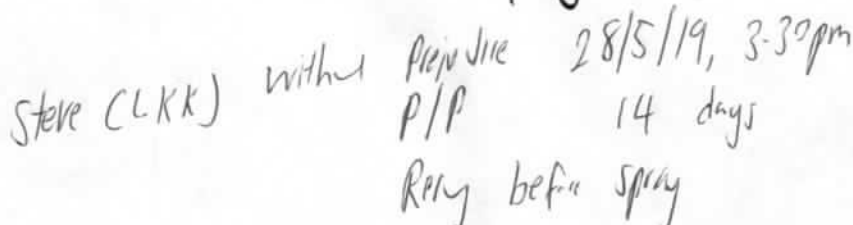 Steve (LKK) without Prejudice 28/5/19, 3-30pm
P/P 14 days
before spray